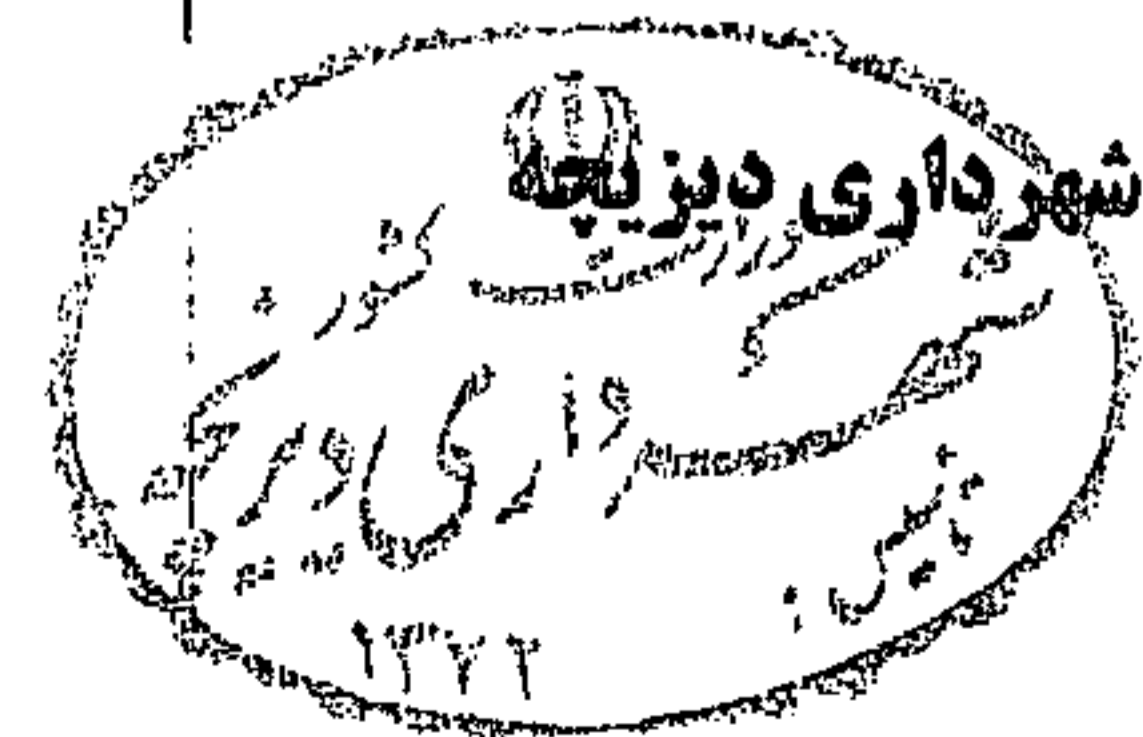 شهرداری دیزیچه
وزارت کشور
شهرداری دیزیچه
تاسیس:
۱۳۲۲